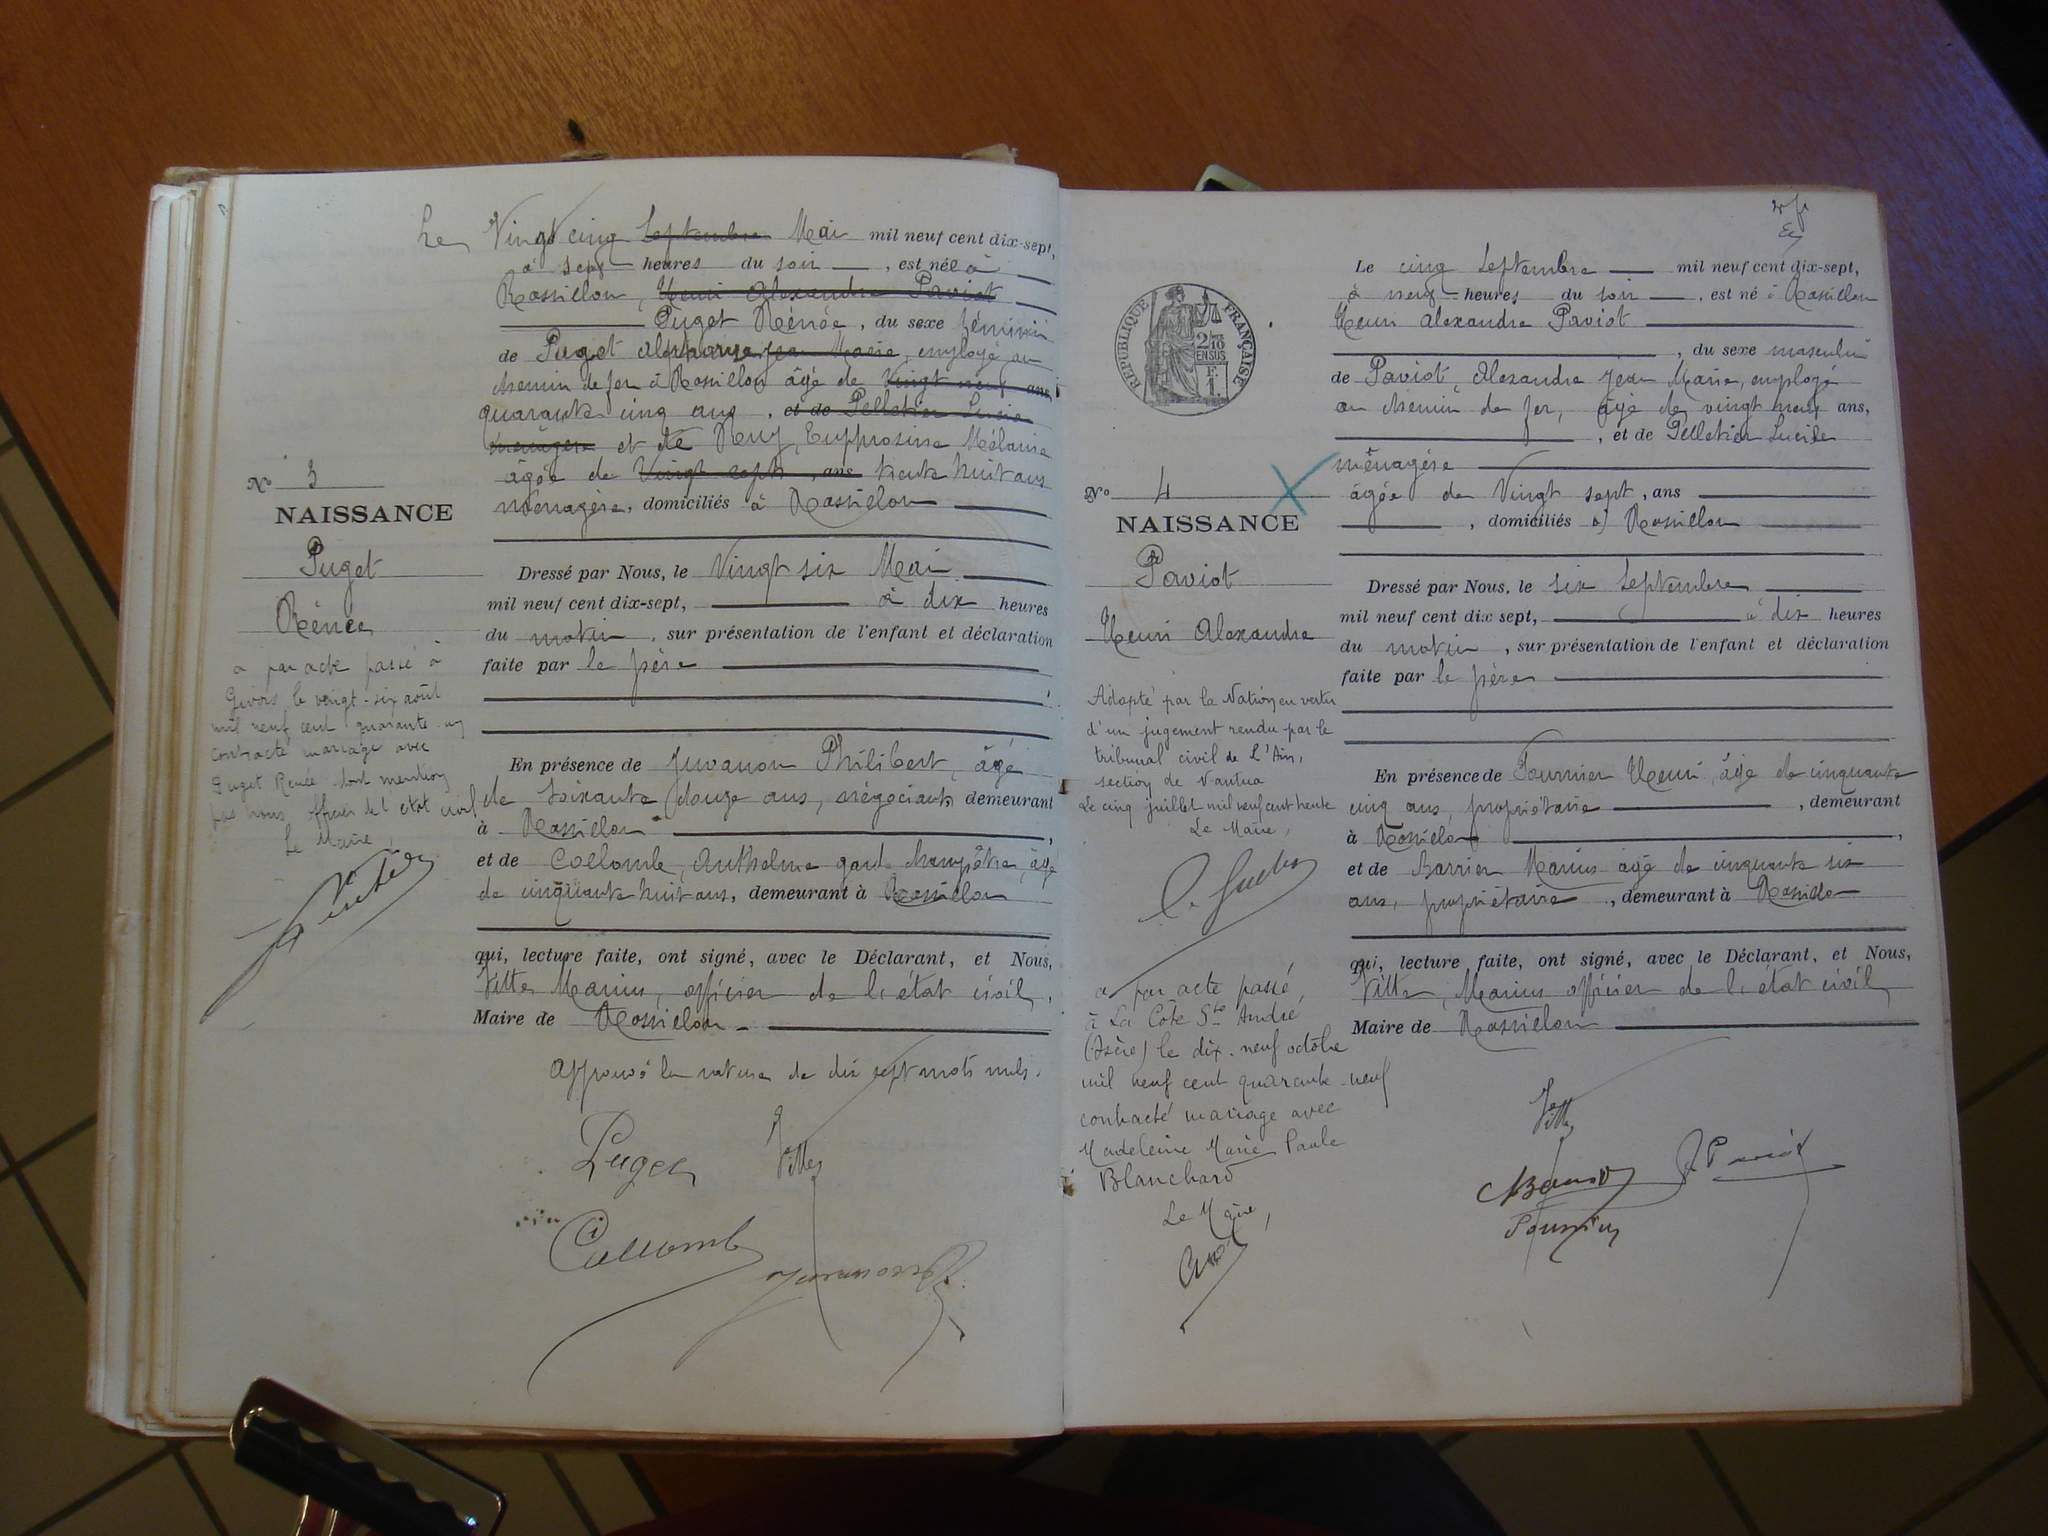 Le Vingt cinq Septembre Mai mil neuf cent dix-sept,
à sept heures du soir, est née à
Rossillon, Henri Alexandre Paviot
Puget Rénée, du sexe féminin
de Puget Alphonse Jean Marie, employé au
chemin de fer à Rossillon âgé de vingt neuf ans
quarante cinq ans, et de Pelletier Lucie
ménagère et de Ruy, Euphrosine Mélanie
âgée de Vingt sept, ans trente huit ans
ménagère, domiciliés à Rossillon
N° 3
NAISSANCE
Puget
Rénée
a par acte passé à
Givors le vingt-six août
mil neuf cent quarante un
contracté mariage avec
Puget Renée dont mention
par nous, officier de l'etat civil
Le Maire,
Dressé par Nous, le Vingt six Mai
mil neuf cent dix-sept, à dix heures
du matin, sur présentation de l'enfant et déclaration
faite par le père
En présence de Juvanon Philibert, âgé
de soixante douze ans, négociant demeurant
à Rossillon,
et de Collomb, Anthelme garde champêtre, âgé
de cinquante huit ans, demeurant à Rossillon
qui, lecture faite, ont signé, avec le Déclarant, et Nous,
Vitte Marius, officier de l'état civil,
Maire de Rossillon
Approuvé la rature de dix sept mots nuls.
Puget
Vitte
Collomb
Juvanon
RÉPUBLIQUE FRANÇAISE
2/10
EN SUS
Le cinq Septembre mil neuf cent dix-sept,
à neuf heures du soir, est né à Rossillon
Henri Alexandre Paviot
, du sexe masculin
de Paviot, Alexandre Jean Marie, employé
au chemin de fer, âgé de vingt neuf ans,
, et de Pelletier Lucie
ménagère
âgée de Vingt sept, ans
, domiciliés à Rossillon
N° 4
NAISSANCE
Paviot
Henri Alexandre
Adopté par la Nation en vertu
d'un jugement rendu par le
tribunal civil de l'Ain,
section de Nantua
Le cinq juillet mil neuf cent trente
Le Maire,
a par acte passé,
à La Côte St André
(Isère) le dix-neuf octobre
mil neuf cent quarante-neuf
contracté mariage avec
Madeleine Marie Paule
Blanchard
Le Maire,
Dressé par Nous, le six Septembre
mil neuf cent dix sept, à dix heures
du matin, sur présentation de l'enfant et déclaration
faite par le père
En présence de Fournier Henri, âgé de cinquante
cinq ans, propriétaire, demeurant
à Rossillon,
et de Barrier Marius âgé de cinquante six
ans, propriétaire, demeurant à Rossillon
qui, lecture faite, ont signé, avec le Déclarant, et Nous,
Vitte, Marius officier de l'état civil
Maire de Rossillon
Vitte
Paviot
Fournier